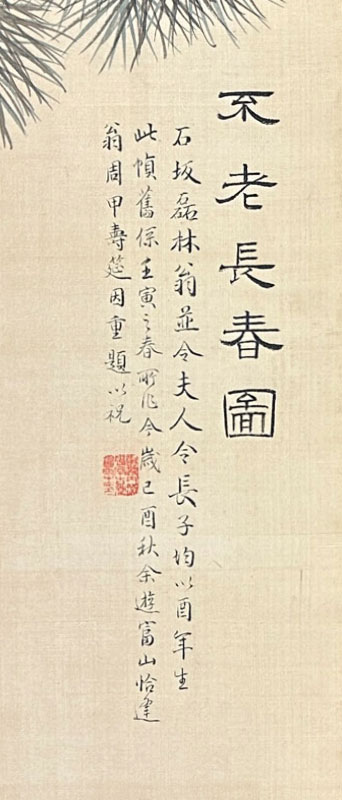 不老長春圖
石坂磊林翁並令夫人令長子均以酉年生
此幀舊係壬寅之春所作今歲己酉秋余遊富山恰逢
翁周甲壽筵因重題以祝